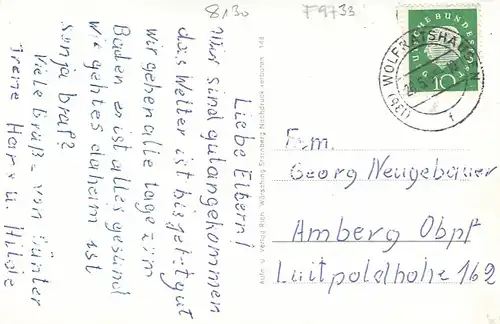 8,30
F 9733
Liebe Eltern!
Wir sind gut angekommen
das Wetter ist bis jetzt gut
wir gehen alle Tage zum
Baden es ist alles gesund
wie geht es daheim ist
Sonja braf?
Viele Grüß. von Günter
Irene Hans u. Hilde
Aufn. u. Verlag Nachdruck verboten
DEUTSCHE BUNDESPOST
10
(13b) WOLFRATSHAUSEN
f
Fam.
Georg Neugebauer
Amberg Obpf
Luitpoldhöhe 162